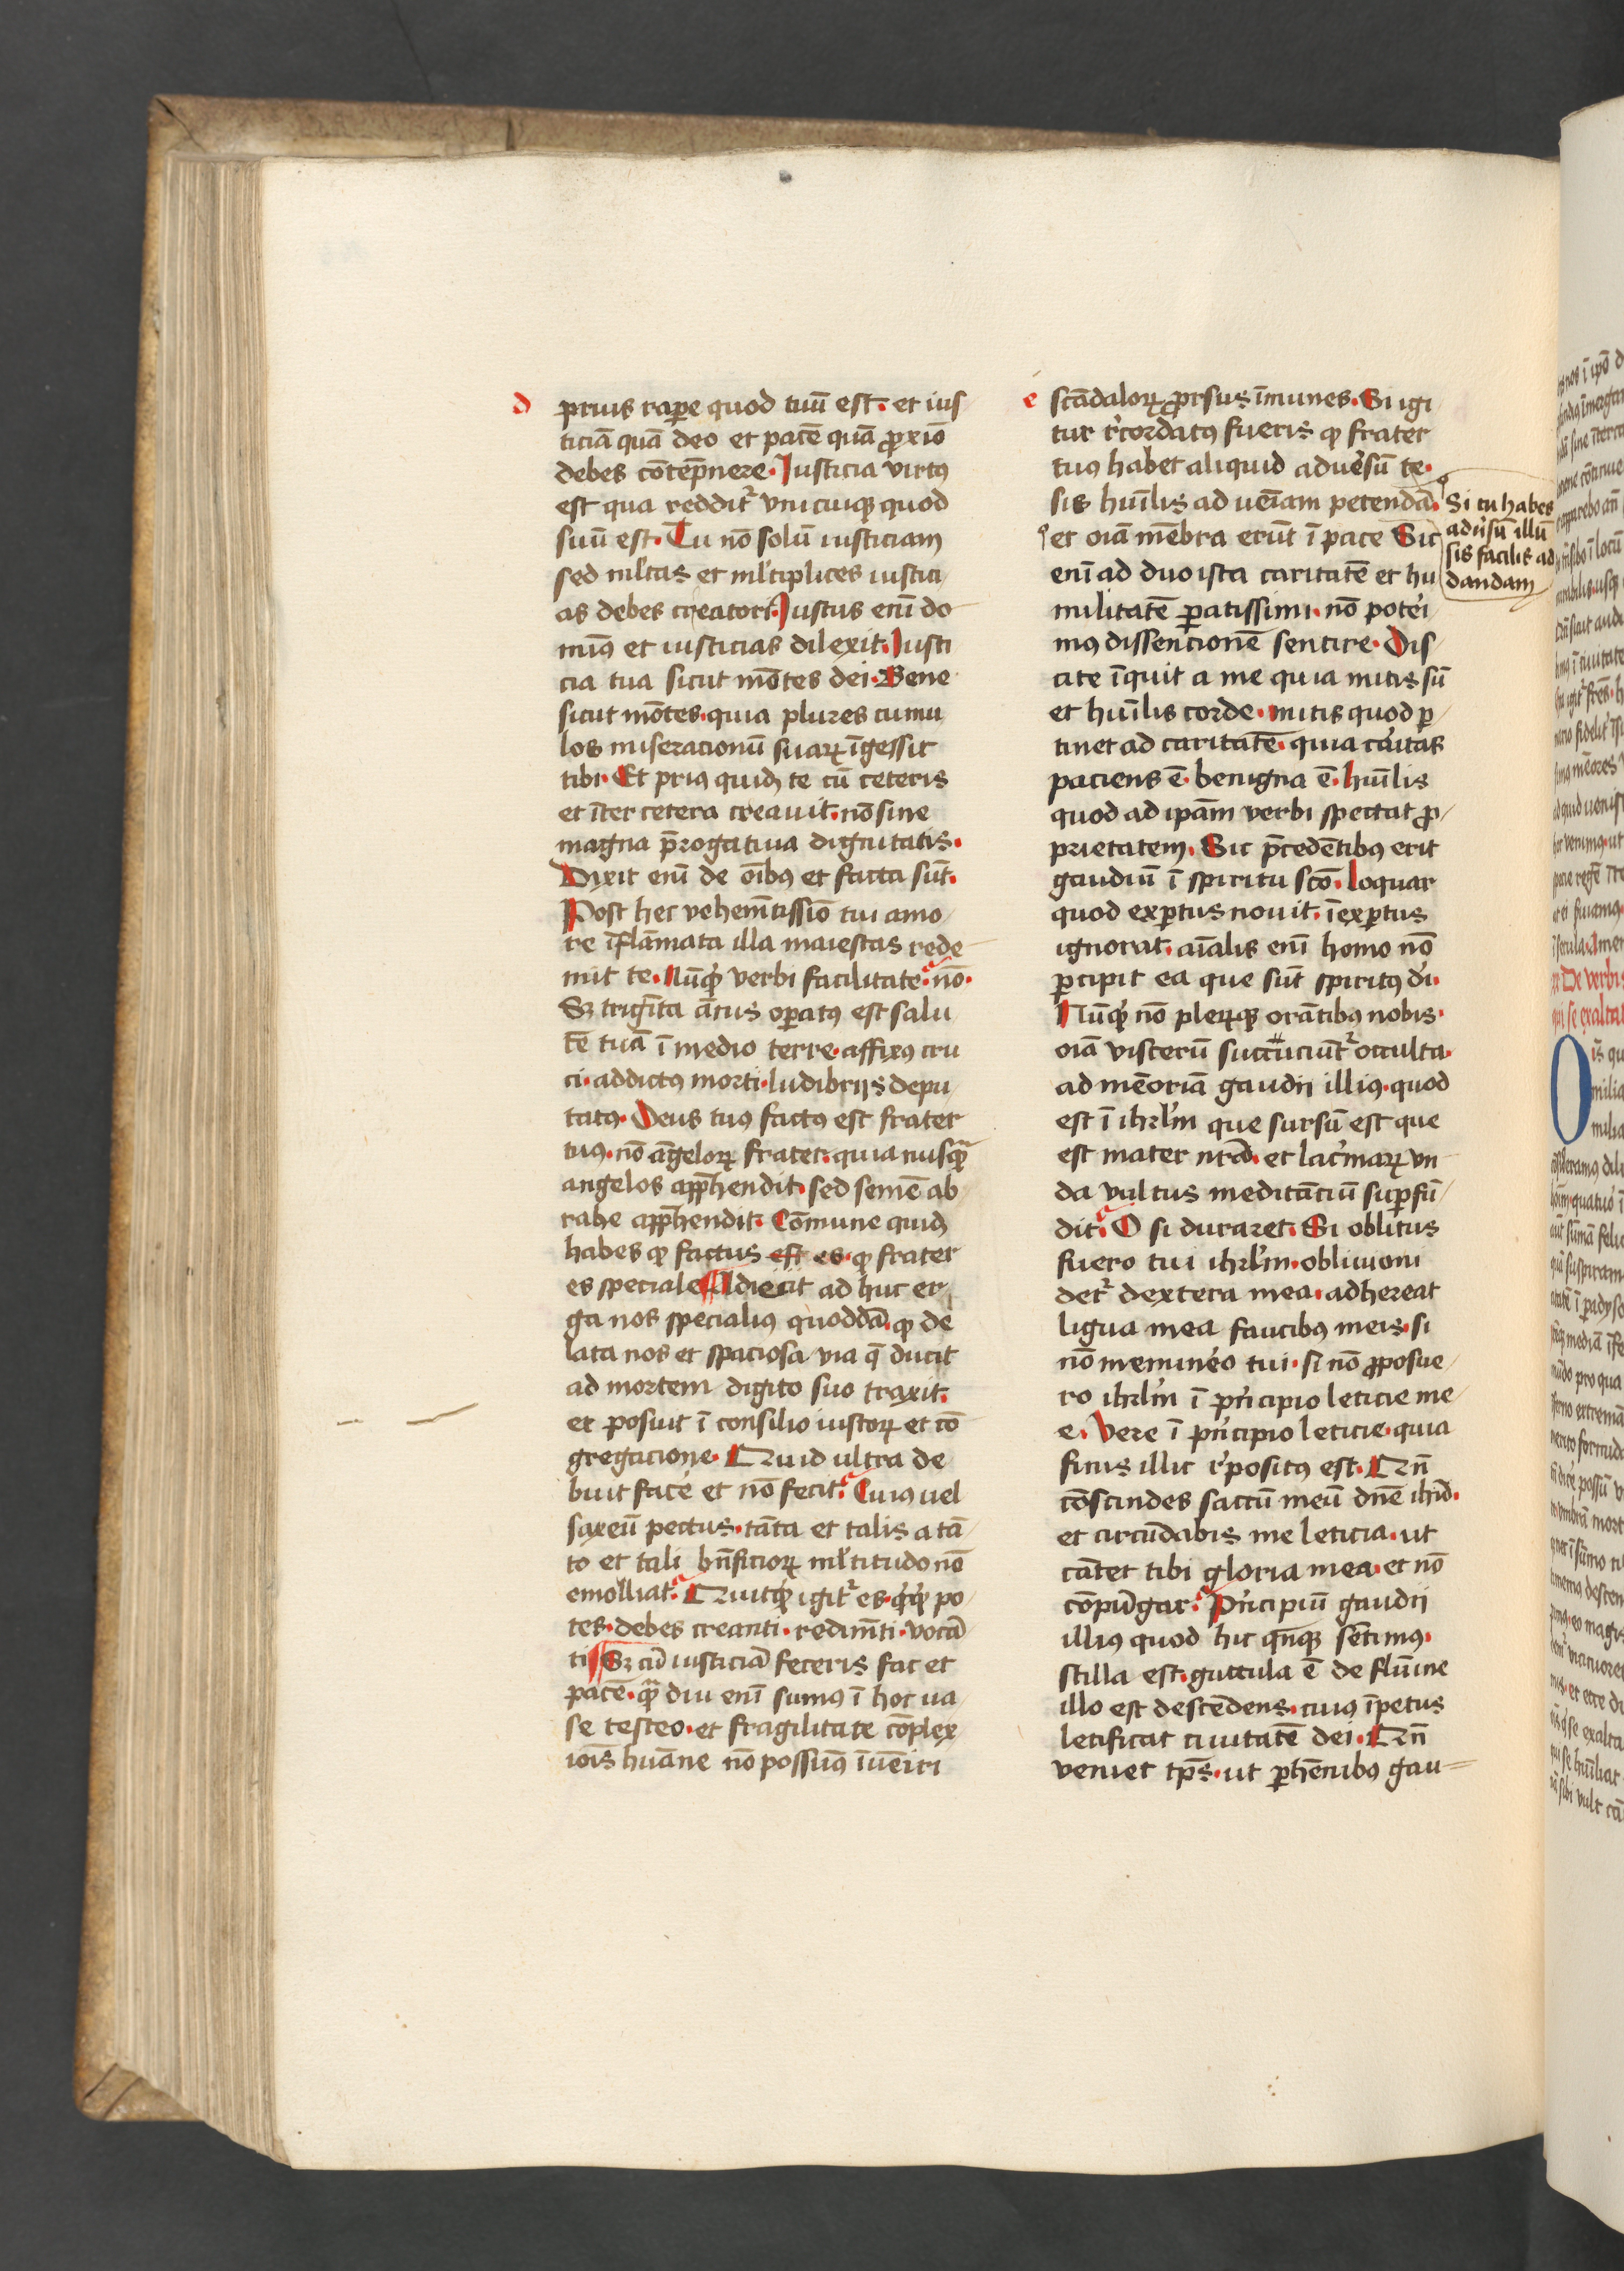 d
prius rapere quod tuū est. et ius
ticiā quā deo et pacē quā ꝓxīo
debes cōtēpnere. Iusticia virtꝰ
est qua redditᷣ vnicuiqꝫ quod
suū est. Tu nō solū iusticiam
sed ml̓tas et ml̓tiplices iustici
as debes creatori. Iustus enī do
minꝰ et iusticias dilexit. Iusti
cia tua sicut mōtes dei. Bene
sicut mōtes. quia plures cumu
los miseracionū suaꝝ īgessit
tibi. Et priꝰ quidē te cū ceteris
et īter cetera creauit. nō sine
magna p̄rogatiua dignitatis.
Dixit enī de oībꝰ et facta sūt.
Post hec vehemētissīo tui amo
re īflāmata illa maiestas rede
mit te. Nūqͥd verbi facilitate. nō.
Sꝫ trigīta ānus oꝑatꝰ est salu
tē tuā ī medio terre. affixꝰ cru
ci. addictꝰ morti. ludibrijs depu
tatꝰ. Deus tuꝰ factꝰ est frater
tuꝰ. nō āgeloꝝ frater. quia nusqᷓ
angelos app̄hendit. sed semē ab
rahe app̄hendit. Cōmune quidē
habes ꝙ factus est es. ꝙ frater
es speciale. Adiecit ad huc er
ga nos specialiꝰ quoddā. ꝙ de
lata nos et spaciosa via q̄ ducit
ad mortem digito suo traxit.
et posuit ī consilio iustoꝝ et cō
gregacione. Quid ultra de
buit facͤe et nō fecit. Cuiꝰ uel
saxeū pectus. tāta et talis a tā
to et tali bn̄ficioꝝ ml̓titudo nō
emolliat. Quitqͥd igitᷣ es. qͥdqͥd po
tes. debes creanti. redimēti. vocā
ti. Sꝫ cū iusticiā feceris fac et
pacē. qᷓ diu enī sumꝰ ī hoc ua
se testeo. et fragilitate cōplex
iōis huāne nō possumꝰ īuēiri
e
scādaloꝝ ꝓrsus īmunes. Si igi
tur rͤcordatꝰ fueris ꝙ frater
tuꝰ habet aliquid aduersū te.
sis huīlis ad ueīam petendā.
et oīa mēbra erūt ī pace Sic
Si tu habes
adusū illū
sis facilis ad
dandam
enī ad duo ista caritatē et hu
militatē ꝑatissimi. nō potei
mꝰ dissencionē sentire. Dis
cite īquit a me quia mitis sū
et huīlis corde. mitis quod ꝑ
tinet ad caritatē. quia caritas
paciens ē. benigna ē. huīlis
quod ad ipām verbi spectat ꝓ
prietatem. Sic p̄cedētibꝰ erit
gaudiū ī spiritu scō. Loquar
quod exꝑtus nouit. īexꝑtus
ignorat. aīalis enī homo nō
ꝑcipit ea que sūt spiritꝰ di.
Nūqͥd nō pleꝝqꝫ orātibꝰ nobis.
oīa visterū succuciūtᷣ occulta.
ad mēoriā gaudii illiꝰ. quod
est ī ihrl̓m que sursū est que
est mater nrā. et lacͥmaꝝ vn
da vultus meditāciū suꝑfū
dit. O si duraret. Si oblitus
fuero tui ihrl̓m. obliuioni
detᷣ dextera mea. adhereat
ligua mea faucibꝰ meis. si
nō meminero tui. si nō ꝓposue
ro ihrl̓m ī pͥncipio leticie me
e. Vere ī pͥncipio leticie. quia
finis illic rͤpositꝰ est. Qn̄
cōscindes saccū meū dn̄e
et circūdabis me leticia. ut
cātet tibi gloria mea. et nō
cōpūgar. Pͥncipiū gaudii
illiꝰ quod hic qn̄qꝫ sētimꝰ.
stilla est. guttula ē de flūine
illo est descēdens. cuiꝰ īpetus
letificat ciuitatē dei. Qn̄
veniet tp̄s. ut ꝑhēnibꝰ gau